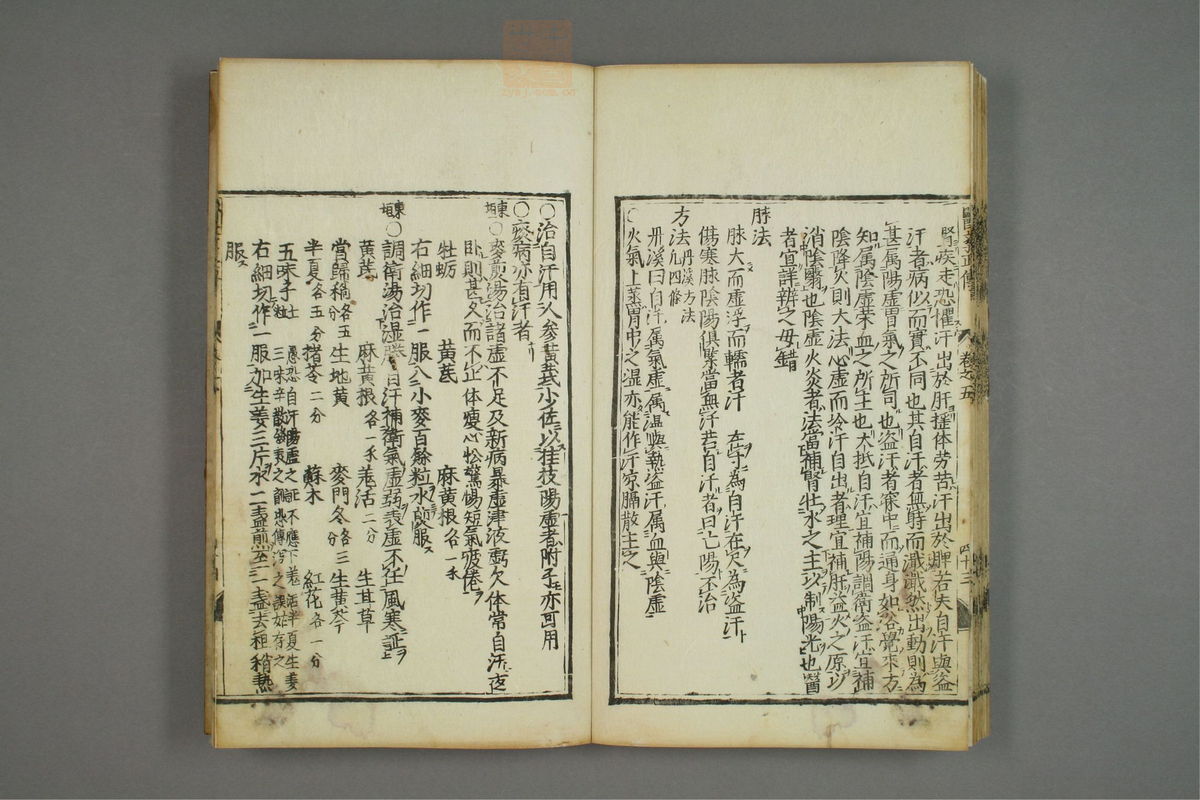 腎疾走恐懼汗出於肝搖体劳苦汗出於脾若夫自汗與盗
汗者病似而實不同也其自汗者無時而濈濈然出動則為
甚属陽虚胃氣之所司也盗汗者寐中而通身如浴覺來方
知属陰虚荣血之所主也大抵自汗宜補陽調衛盗汗宜補
陰降火則大法心虚而冷汗自出者理宜補肝益火之原以
消陰翳也陰虚火炎者法當補腎壮水之主以制陽光也醫
者宜詳辨之毋錯
脉法
脉大而虚浮而軟者汗 左寸為自汗在尺為盗汗
傷寒脉陰陽俱緊當無汗若自汗者曰亡陽不治
方法 丹溪方法凡四條
丹溪曰自汗属氣虚属湿與熱盗汗属血與陰虚
〇火氣上蒸胃中之湿亦能作汗凉膈散主之
醫學正傳 卷之五 四十三
〇治自汗用人参黄芪少佐以桂枝陽虚者附子亦可用
〇痰病亦有汗者
東垣〇麥煎湯治諸虚不足及新病暴虚津液虧欠体常自汗夜
卧則甚久而不止体瘦心忪驚惕短氣疲倦
牡蛎 黄芪 麻黄根各一
右細切作一服入小麥百餘粒水煎服
東垣〇調衛湯治湿勝自汗補衛氣虚弱表虚不任風寒証
黄芪 麻黄根各一 羌活二分 生甘草
當歸稍各五分 生地黄 麥門冬各三分 生黄芩
半夏各五分 猪苓二分 蘇木 紅花各一分
五味子七粒
右細切作一服加生姜三片水二盏煎至一盏去柤稍熱
服